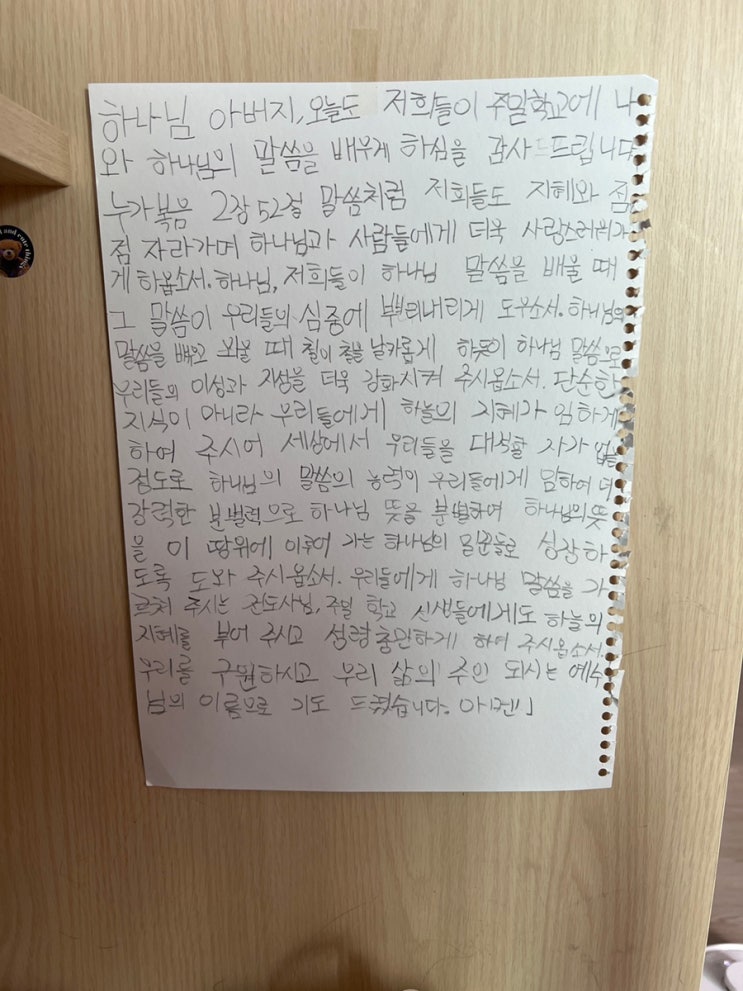 하나님 아버지, 오늘도 저희들이 주일학교에 나
와 하나님의 말씀을 배우게 하심을 감사 드립니다
누가복음 2장 52절 말씀처럼 저희들도 지혜와 점
점 자라가며 하나님과 사람들에게 더욱 사랑스러워가
게 하옵소서. 하나님, 저희들이 하나님 말씀을 배울 때
그 말씀이 우리들의 심중에 뿌리내리게 도우소서. 하나님의
말씀을 배울 때 철이 철을 날카롭게 하듯이 하나님 말씀으로
우리들의 이성과 지성을 더욱 강화시켜 주시옵소서. 단순한
지식이 아니라 우리들에게 하늘의 지혜가 임하게
하여 주시어 세상에서 우리들을 대적할 자가 없을
정도로 하나님의 말씀의 능력이 우리들에게 임하여 더
강력한 분별력으로 하나님 뜻을 분별하여 하나님의 뜻
을 이 땅위에 이루어 가는 하나님의 일꾼들로 성장하
도록 도와 주시옵소서. 우리들에게 하나님 말씀을 가
르쳐 주시는 전도사님, 주일 학교 선생들에게도 하늘의
지혜를 부어 주시고 성령충만하게 하여 주시옵소서.
우리를 구원하시고 우리 삶의 주인 되시는 예수
님의 이름으로 기도 드렸습니다. 아멘」